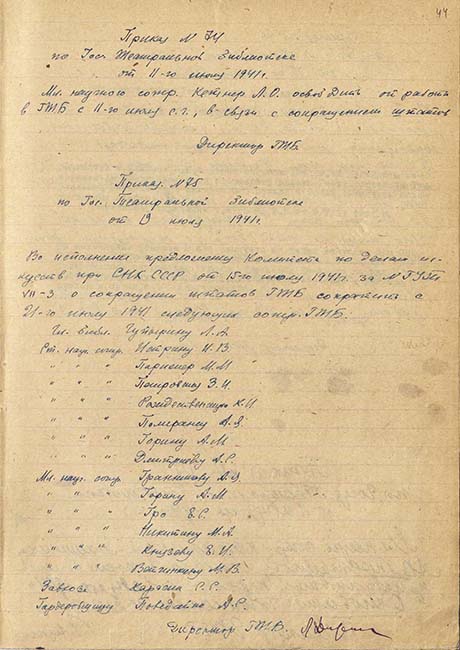 44
Приказ № 74
по Гос. Театральной Библиотеке
от 11-го июля 1941 г.
Мл. научного сотр. Кетнер Л.О. освободить от работы
в ГТБ с 11-го июля с.г., в связи с сокращением штатов
Директор ГТБ.
Приказ № 75
по Гос. Театральной Библиотеке
от 19 июля 1941 г.
Во исполнение предложения Комитета по делам ис-
кусств при СНК СССР от 15-го июля 1941 г. за №
VII-3 о сокращении штатов ГТБ сократить с
21-го июля 1941 следующих сотр. ГТБ:
Гл. библ. Л.А.
Ст. науч. сотр. Истрину И.В.
" " " М.М
" " " Петровых З.И.
" " " Рождественскую К.И
" " " Померанц А.Я.
" " " Горину А.М
" " " Дмитриеву А.С.
Мл. науч. сотр. А.Я.
" " " Горину А.М
" " " Гро Е.С.
" " " Никитину М.А.
" " " Князеву Е.И.
" " " М.В.
Завхоза С.С.
Гардеробщицу А.С.
Директор ГТБ.